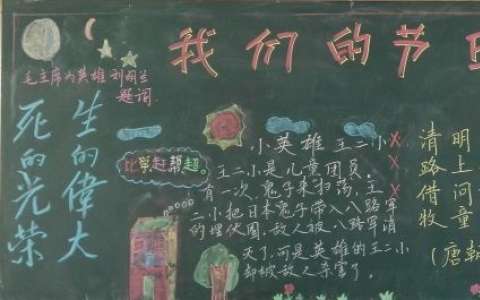 我们的节日
毛主席为英雄刘胡兰
题词
生的偉大
死的光荣
比学赶帮超。
小英雄 王二小
王二小是儿童团员。
有一次,鬼子来扫荡,王
二小把日本鬼子带入八路军
的埋伏圈,敌人被八路军消
灭了,可是英雄的王二小
却被敌人杀害了。
清明
路上
借问
牧童
(唐朝